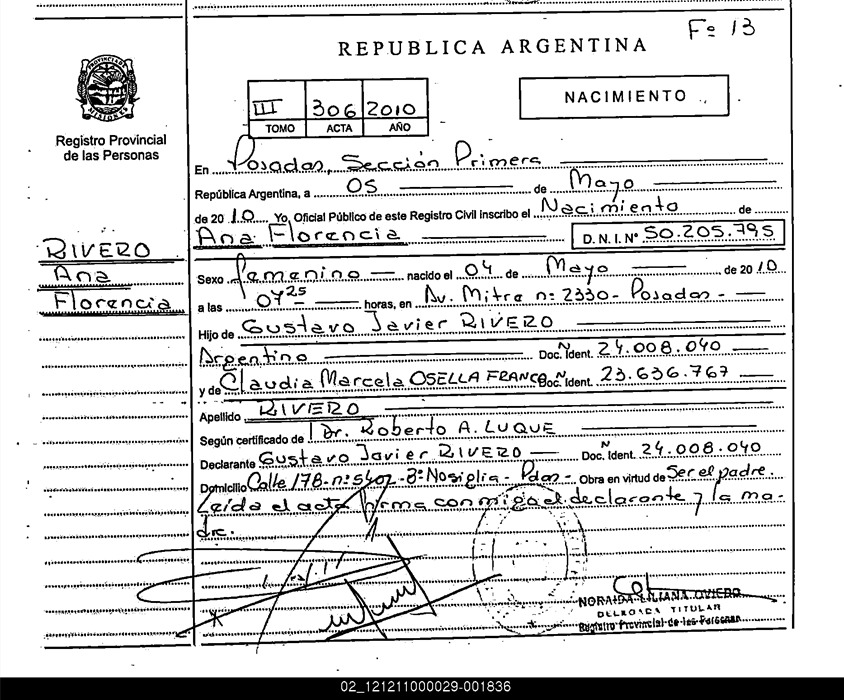 Fº 13
REPUBLICA ARGENTINA
PROVINCIA DE MISIONES
III 306 2010
TOMO ACTA AÑO
NACIMIENTO
Registro Provincial
de las Personas
En Posadas, Sección Primera
República Argentina, a 05 de Mayo
de 2010 Yo, Oficial Público de este Registro Civil inscribo el Nacimiento de
Ana Florencia D.N.I.Nº 50.205.795
RIVERO
Ana
Florencia
Sexo femenino nacido el 04 de Mayo de 2010
a las 07 25 horas, en Av. Mitre nº 2330 - Posadas -
Hijo de Gustavo Javier RIVERO
Argentino Doc. Ident. Nº 24.008.040
y de Claudia Marcela OSELLA FRANCO Doc. Ident. Nº 23.636.767
Apellido RIVERO
Según certificado de Dr. Roberto A. LUQUE
Declarante Gustavo Javier RIVERO Doc. Ident. N 24.008.040
Domicilio Calle 178 - nº 5402 - Bº Nosiglia - Pdas -. Obra en virtud de Ser el padre.
Leída el acta firma conmigo el declarante y la ma-
dre.
NORAIDA LILIANA OVIEDO
DELEGADA TITULAR
Registro Provincial de las Personas
02_121211000029-001836